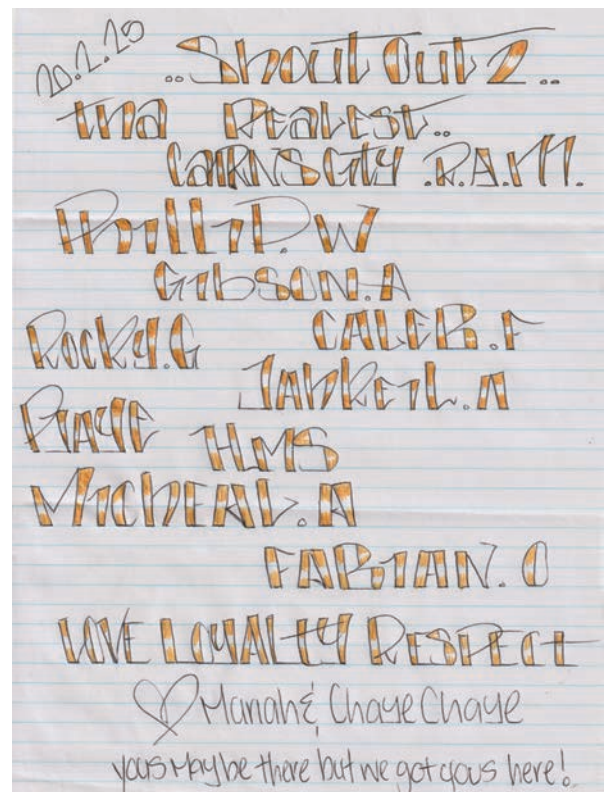 20.2.20
..Shout Out 2..
tha Realest..
Cairns City .R.A.M.
Phillip.W
Gibson.A
CALEB.F
Rocky.G
Jahkeil.A
H.M.S
Micheal.A
FABIAN.O
LOVE LOYALTY RESPECT
Manah & Chaye Chaye
yous may be there but we got yous here!